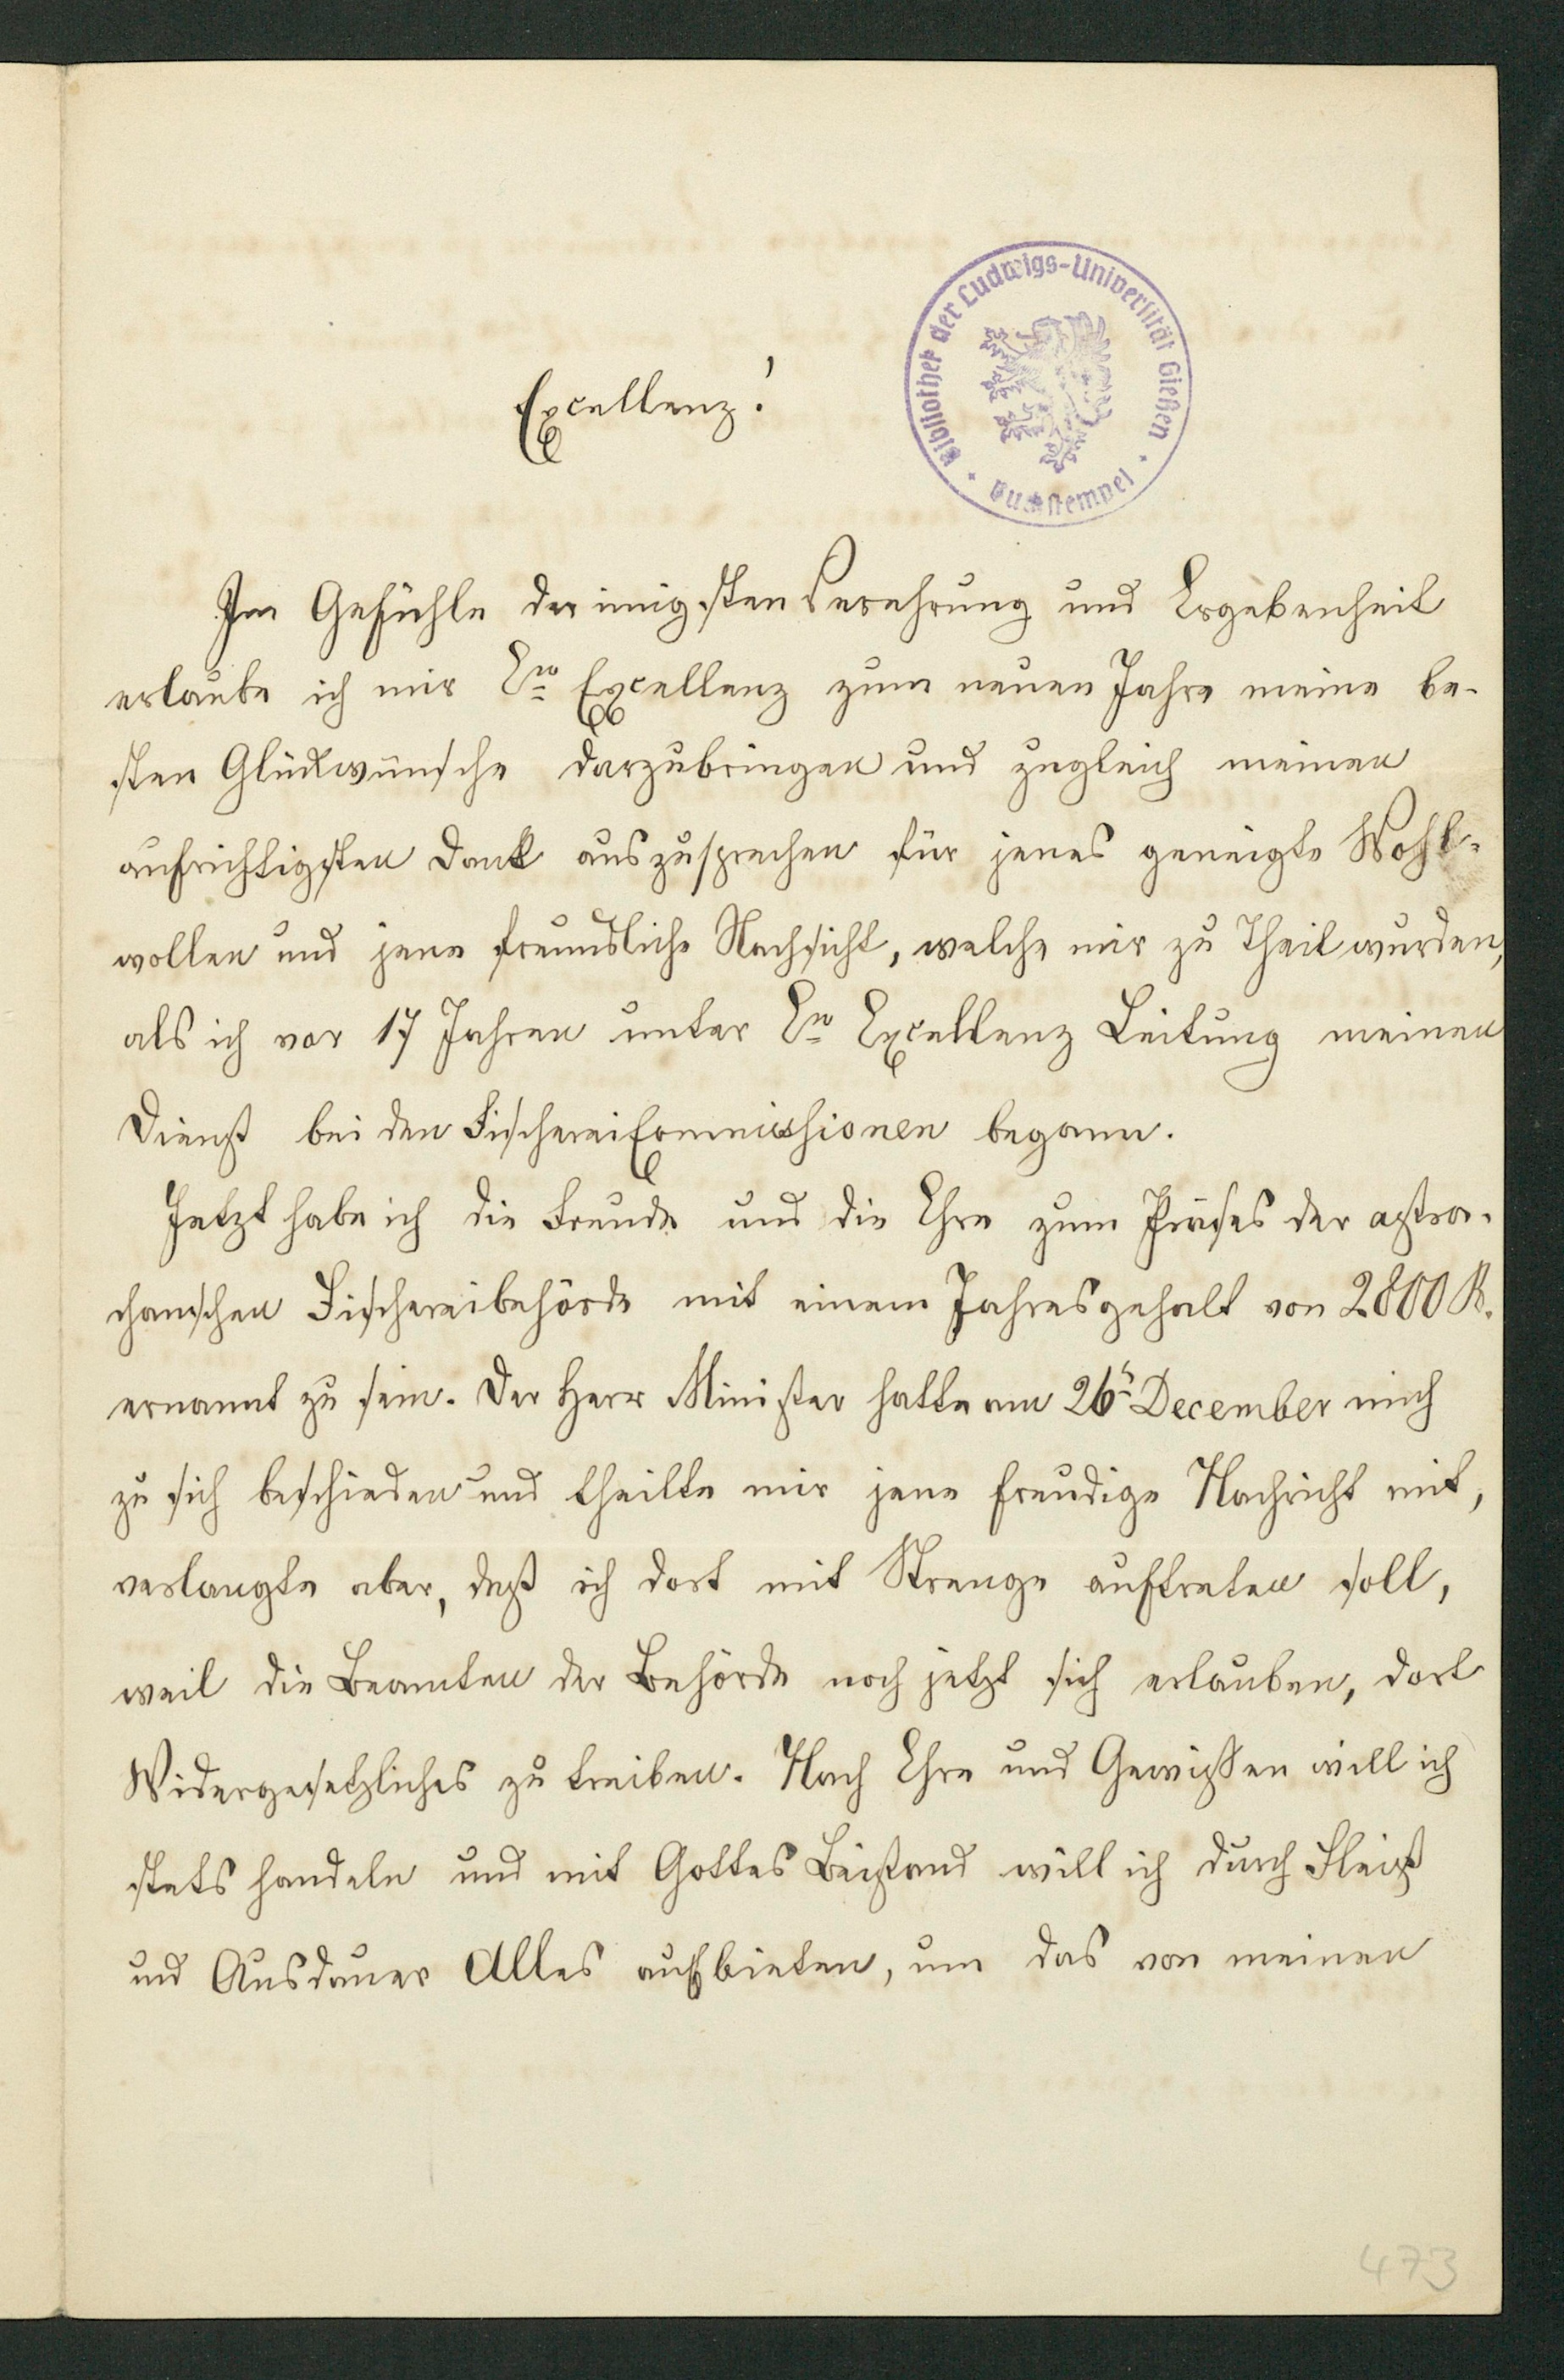 Excellenz!
Bibliothek der Ludwigs-Universität Gießen
Im Gefühle der innigsten Verehrung und Ergebenheit
erlaube ich mir Ew Excellenz zum neuen Jahre meine be-
sten Glückwünsche darzubringen und zugleich meinen
aufrichtigsten Dank auszusprechen für jenes geneigte Wohl-
wollen und jene freundliche Nachsicht, welche mir zu Theil wurden,
als ich vor 17 Jahren unter Ew Excellenz Leitung meinen
Dienst bei den Fischerei Commissionen begann.
Jetzt habe ich die Freude und die Ehre zum Präses der astra-
chanschen Fischereibehörde mit einem Jahresgehalt von 2800 R.
ernannt zu sein. Der Herr Minister hatte am 26t December mich
zu sich beschieden und theilte mir jene freudige Nachricht mit,
verlangte aber, daß ich dort mit Strenge auftreten soll,
weil die Beamten der Behörde noch jetzt sich erlauben, dort
Widergesetzliches zu treiben. Nach Ehre und Gewißen will ich
stets handeln und mit Gottes Beistand will ich durch Fleiß
und Ausdauer Alles aufbieten, um das von meinen
473